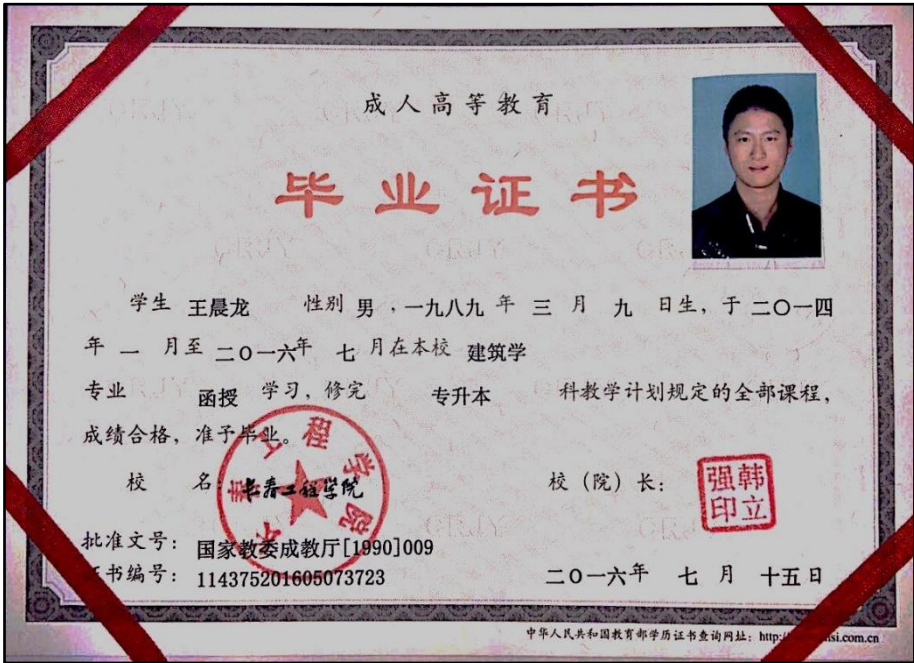 成人高等教育
毕业证书
学生 王晨龙 性别 男，一九八九 年 三 月 九 日生，于 二〇一四
年 一 月至 二〇一六年 七 月在本校 建筑学
专业 函授 学习，修完 专升本 科教学计划规定的全部课程，
成绩合格，准予毕业。
校 名：长春工程学院
校（院）长：
韩立强印
批准文号：国家教委成教厅[1990]009
书编号：114375201605073723
二〇一六年 七 月 十五日
中华人民共和国教育部学历证书查询网址：http:
si.com.cn